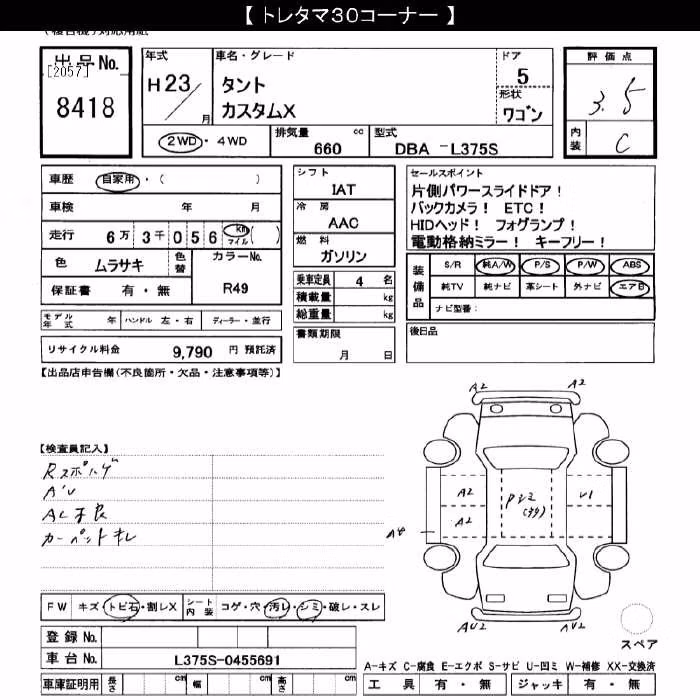 【 トレタマ30コーナー 】
出品No.
[2057]
8418
年式
H 23
月
車名・グレード
タント
カスタムX
ドア
5
形状
ワゴン
評価点
3.5
内装
C
2WD・4WD
排気量 cc
660
型式
DBA -L375S
車歴 自家用・( )
車検 年 月
走行 6万 3千 0 5 6 km マイル ( )
色 ムラサキ 色替
カラーNo.
R49
保証書 有・無
モデル年式 年 ハンドル 左・右 ディーラー・並行
リサイクル料金 9,790 円 預託済
シフト
IAT
冷房
AAC
燃料
ガソリン
乗車定員 4 名
積載量 kg
総重量 kg
書類期限
月 日
セールスポイント
片側パワースライドドア!
バックカメラ! ETC!
HIDヘッド! フォグランプ!
電動格納ミラー! キーフリー!
装備品
S/R 純A/W P/S P/W ABS
純TV 純ナビ 革シート 外ナビ エアB
ナビ型番:
後日品
【出品店申告欄(不良箇所・欠品・注意事項等)】
【検査員記入】
Rスポイゲ
A'U
AL不良
カーペットキレ
A2 A2
A2
A2
U1
A4
AU2 AU2
FW キズ・トビ石・割レX シート内装 コゲ・穴・汚レ・シミ・破レ・スレ
登録No.
車台No. L375S-0455691
車庫証明用 長さ cm 幅 cm 高さ cm
スペア
A-キズ C-腐食 E-エクボ S-サビ U-凹ミ W-補修 XX-交換済
工具 有・無 ジャッキ 有・無